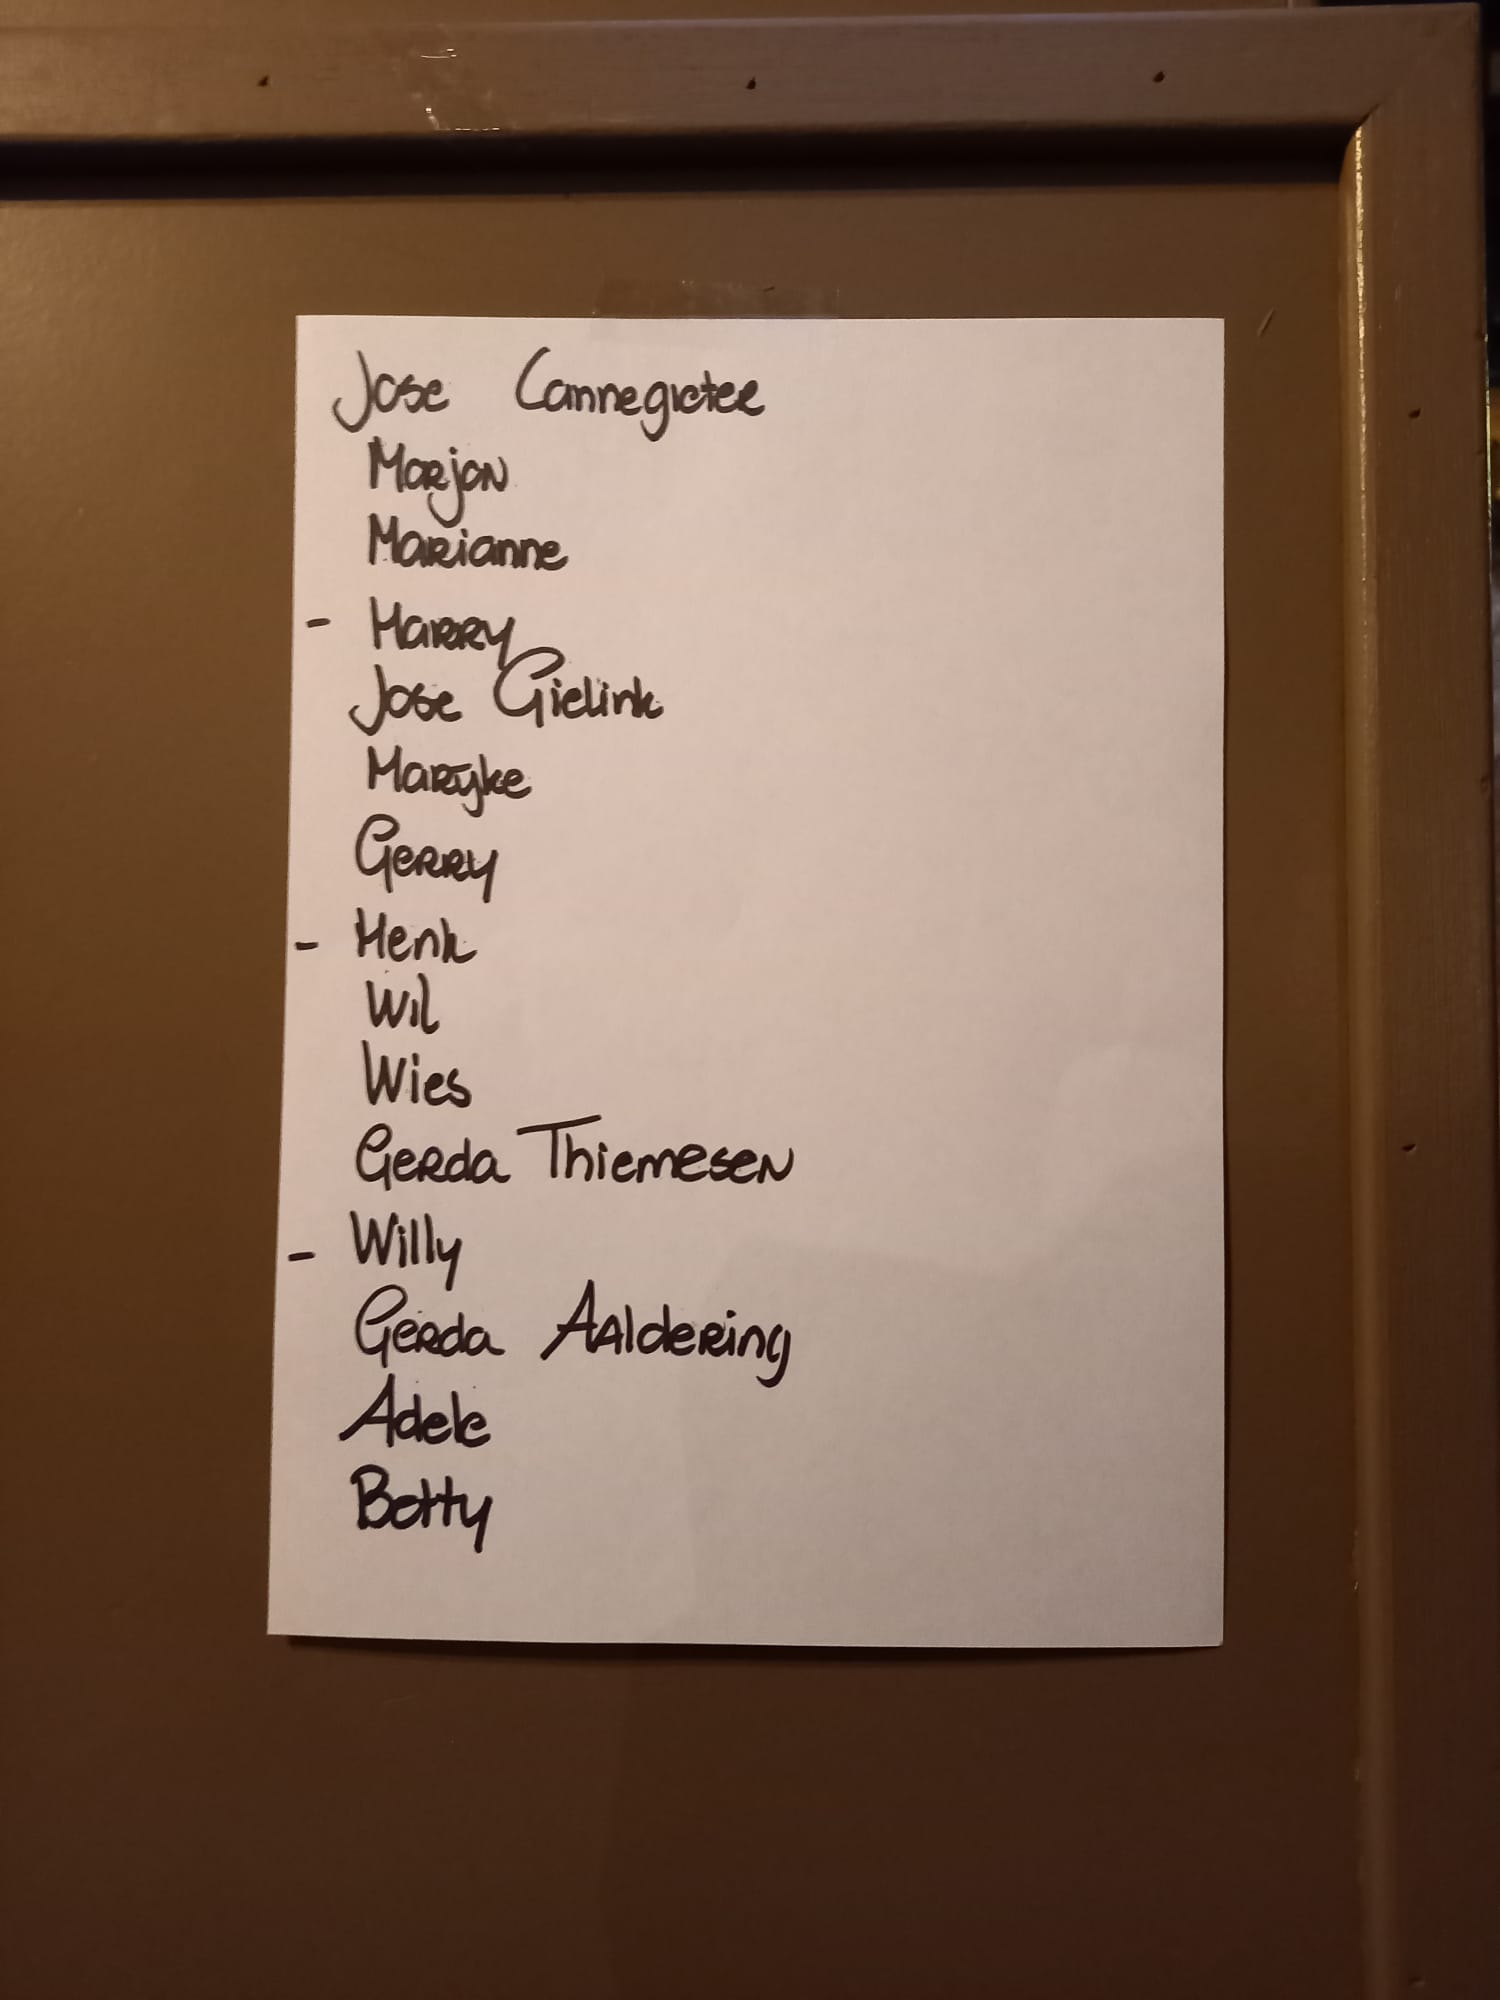 Jose Cannegieter
Marjan
Marianne
- Harry
Jose Gielink
Maryke
Gerry
- Henk
Wil
Wies
Gerda Thiemesen
- Willy
Gerda Aaldering
Adele
Betty